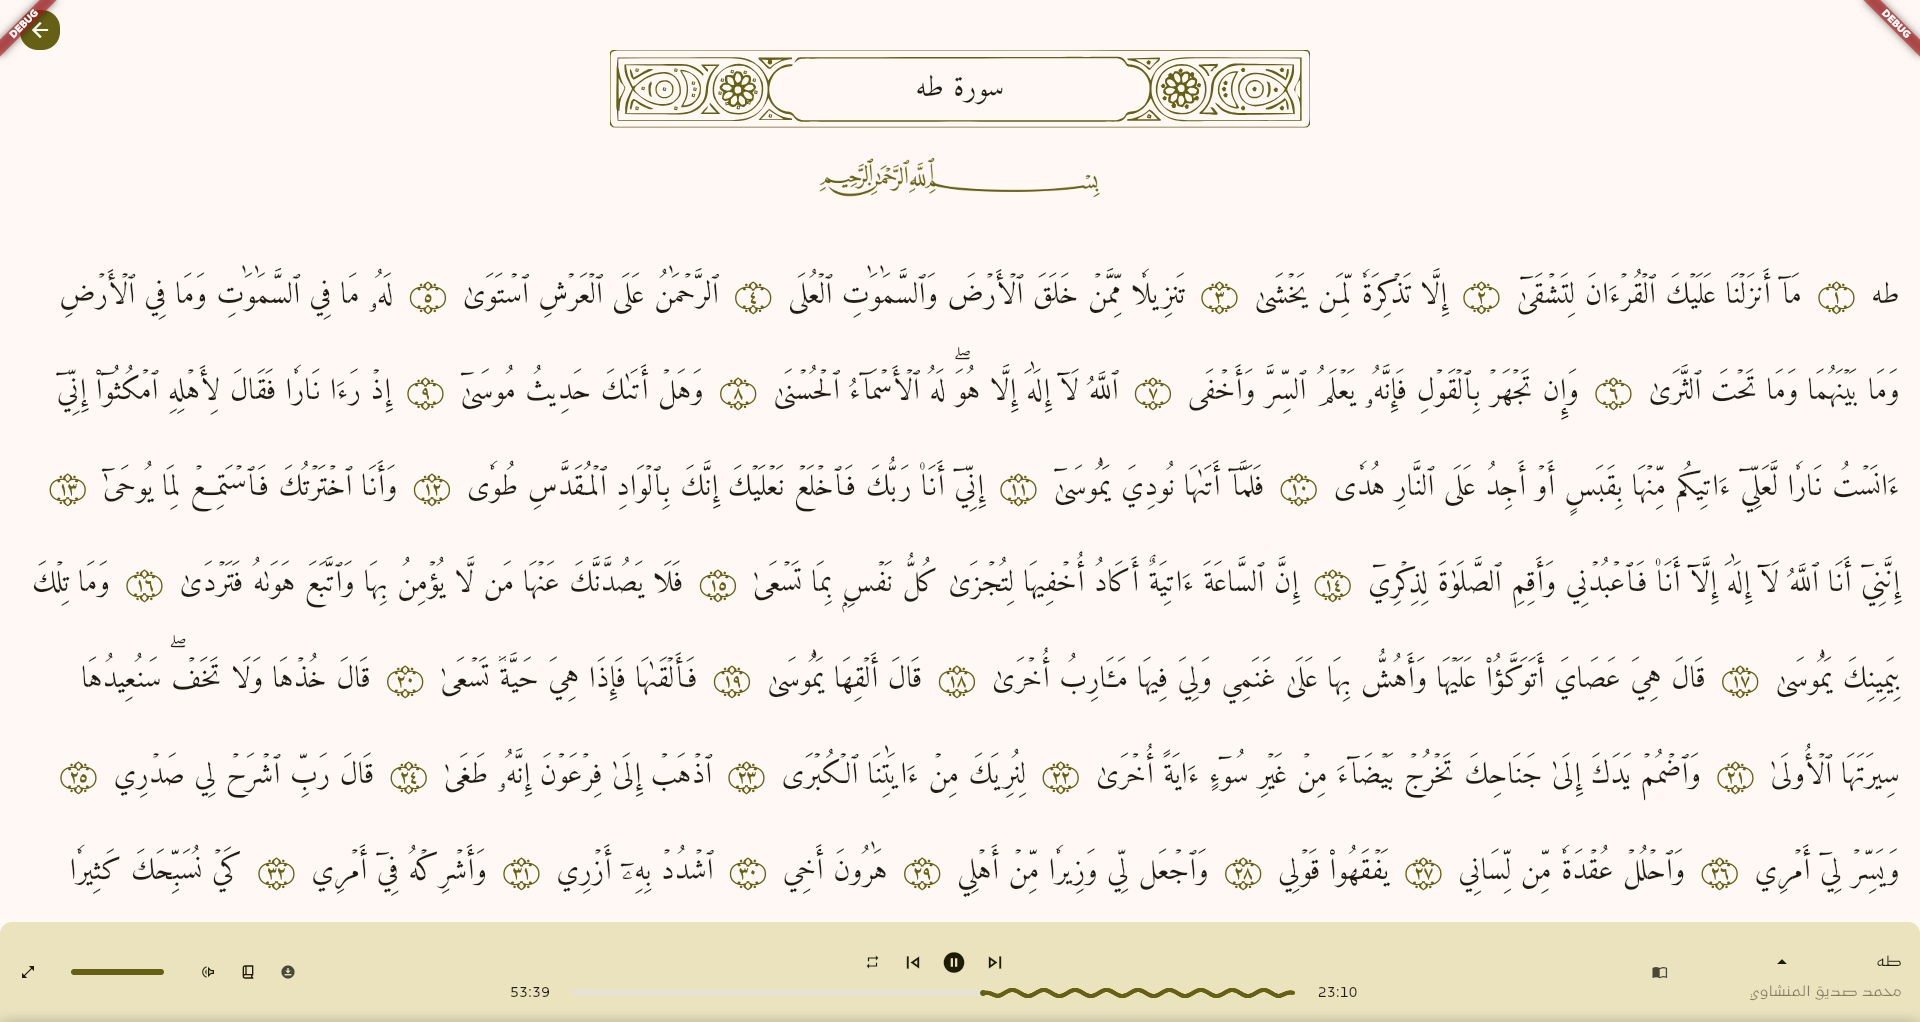 DEBUG
DEBUG
سورة طه
بِسۡمِ ٱللَّهِ ٱلرَّحۡمَٰنِ ٱلرَّحِيمِ
طه ١ مَآ أَنزَلۡنَا عَلَيۡكَ ٱلۡقُرۡءَانَ لِتَشۡقَىٰٓ ٢ إِلَّا تَذۡكِرَةٗ لِّمَن يَخۡشَىٰ ٣ تَنزِيلٗا مِّمَّنۡ خَلَقَ ٱلۡأَرۡضَ وَٱلسَّمَٰوَٰتِ ٱلۡعُلَى ٤ ٱلرَّحۡمَٰنُ عَلَى ٱلۡعَرۡشِ ٱسۡتَوَىٰ ٥ لَهُۥ مَا فِي ٱلسَّمَٰوَٰتِ وَمَا فِي ٱلۡأَرۡضِ
وَمَا بَيۡنَهُمَا وَمَا تَحۡتَ ٱلثَّرَىٰ ٦ وَإِن تَجۡهَرۡ بِٱلۡقَوۡلِ فَإِنَّهُۥ يَعۡلَمُ ٱلسِّرَّ وَأَخۡفَى ٧ ٱللَّهُ لَآ إِلَٰهَ إِلَّا هُوَۖ لَهُ ٱلۡأَسۡمَآءُ ٱلۡحُسۡنَىٰ ٨ وَهَلۡ أَتَىٰكَ حَدِيثُ مُوسَىٰٓ ٩ إِذۡ رَءَا نَارٗا فَقَالَ لِأَهۡلِهِ ٱمۡكُثُوٓاْ إِنِّيٓ
ءَانَسۡتُ نَارٗا لَّعَلِّيٓ ءَاتِيكُم مِّنۡهَا بِقَبَسٍ أَوۡ أَجِدُ عَلَى ٱلنَّارِ هُدٗى ١٠ فَلَمَّآ أَتَىٰهَا نُودِيَ يَٰمُوسَىٰٓ ١١ إِنِّيٓ أَنَا۠ رَبُّكَ فَٱخۡلَعۡ نَعۡلَيۡكَ إِنَّكَ بِٱلۡوَادِ ٱلۡمُقَدَّسِ طُوٗى ١٢ وَأَنَا ٱخۡتَرۡتُكَ فَٱسۡتَمِعۡ لِمَا يُوحَىٰٓ ١٣
إِنَّنِيٓ أَنَا ٱللَّهُ لَآ إِلَٰهَ إِلَّآ أَنَا۠ فَٱعۡبُدۡنِي وَأَقِمِ ٱلصَّلَوٰةَ لِذِكۡرِيٓ ١٤ إِنَّ ٱلسَّاعَةَ ءَاتِيَةٌ أَكَادُ أُخۡفِيهَا لِتُجۡزَىٰ كُلُّ نَفۡسِۭ بِمَا تَسۡعَىٰ ١٥ فَلَا يَصُدَّنَّكَ عَنۡهَا مَن لَّا يُؤۡمِنُ بِهَا وَٱتَّبَعَ هَوَىٰهُ فَتَرۡدَىٰ ١٦ وَمَا تِلۡكَ
بِيَمِينِكَ يَٰمُوسَىٰ ١٧ قَالَ هِيَ عَصَايَ أَتَوَكَّؤُاْ عَلَيۡهَا وَأَهُشُّ بِهَا عَلَىٰ غَنَمِي وَلِيَ فِيهَا مَـَٔارِبُ أُخۡرَىٰ ١٨ قَالَ أَلۡقِهَا يَٰمُوسَىٰ ١٩ فَأَلۡقَىٰهَا فَإِذَا هِيَ حَيَّةٞ تَسۡعَىٰ ٢٠ قَالَ خُذۡهَا وَلَا تَخَفۡۖ سَنُعِيدُهَا
سِيرَتَهَا ٱلۡأُولَىٰ ٢١ وَٱضۡمُمۡ يَدَكَ إِلَىٰ جَنَاحِكَ تَخۡرُجۡ بَيۡضَآءَ مِنۡ غَيۡرِ سُوٓءٍ ءَايَةً أُخۡرَىٰ ٢٢ لِنُرِيَكَ مِنۡ ءَايَٰتِنَا ٱلۡكُبۡرَى ٢٣ ٱذۡهَبۡ إِلَىٰ فِرۡعَوۡنَ إِنَّهُۥ طَغَىٰ ٢٤ قَالَ رَبِّ ٱشۡرَحۡ لِي صَدۡرِي ٢٥
وَيَسِّرۡ لِيٓ أَمۡرِي ٢٦ وَٱحۡلُلۡ عُقۡدَةٗ مِّن لِّسَانِي ٢٧ يَفۡقَهُواْ قَوۡلِي ٢٨ وَٱجۡعَل لِّي وَزِيرٗا مِّنۡ أَهۡلِي ٢٩ هَٰرُونَ أَخِي ٣٠ ٱشۡدُدۡ بِهِۦٓ أَزۡرِي ٣١ وَأَشۡرِكۡهُ فِيٓ أَمۡرِي ٣٢ كَيۡ نُسَبِّحَكَ كَثِيرٗا
طه
محمد صديق المنشاوي
23:10
53:39